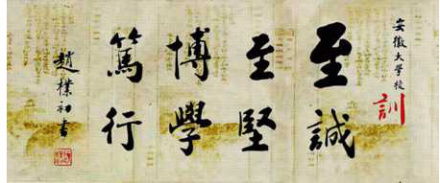 安徽大学校训
至誠
至堅
博學
篤行
趙樸初書